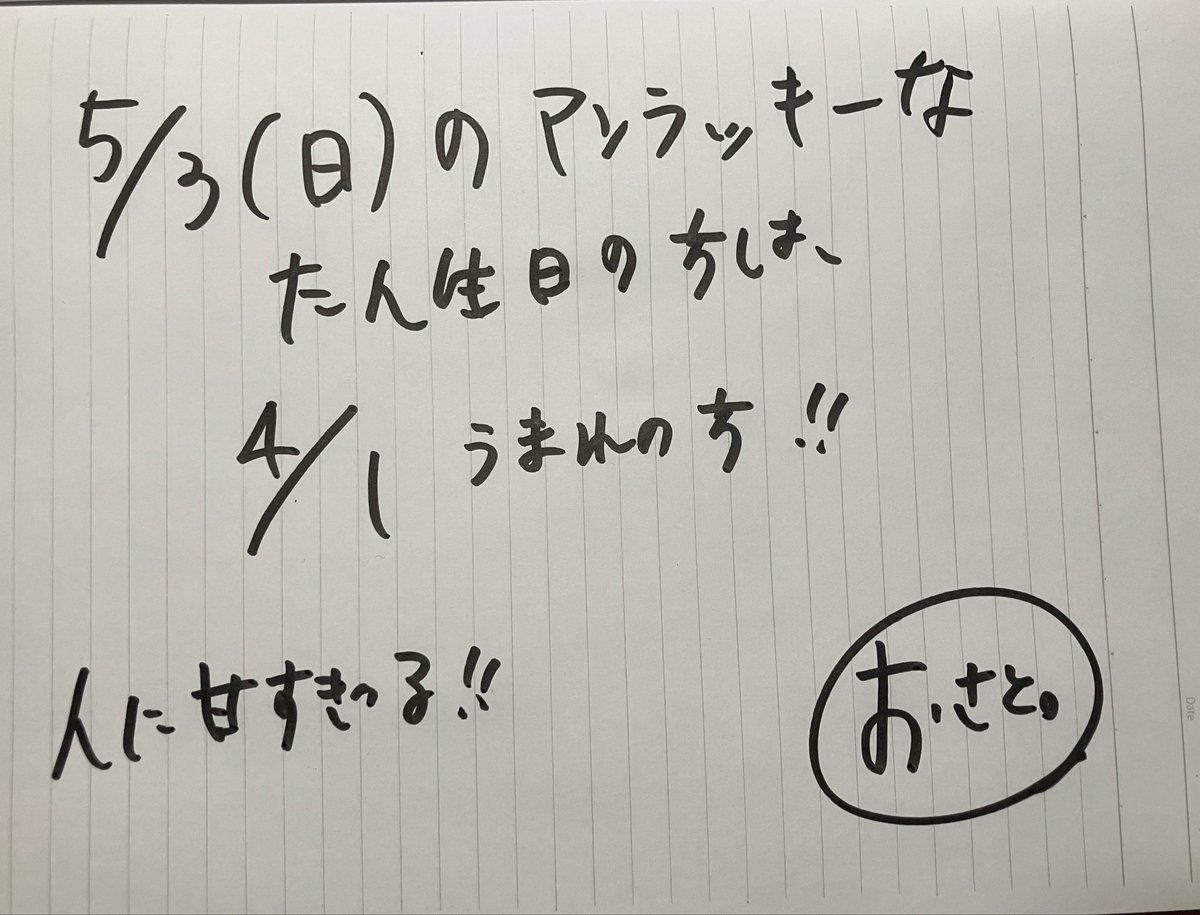 5/3(日)のアンラッキーな
たん生日の方は、
4/1 うまれの方!!
人に甘すぎる!!
おさと。
Date